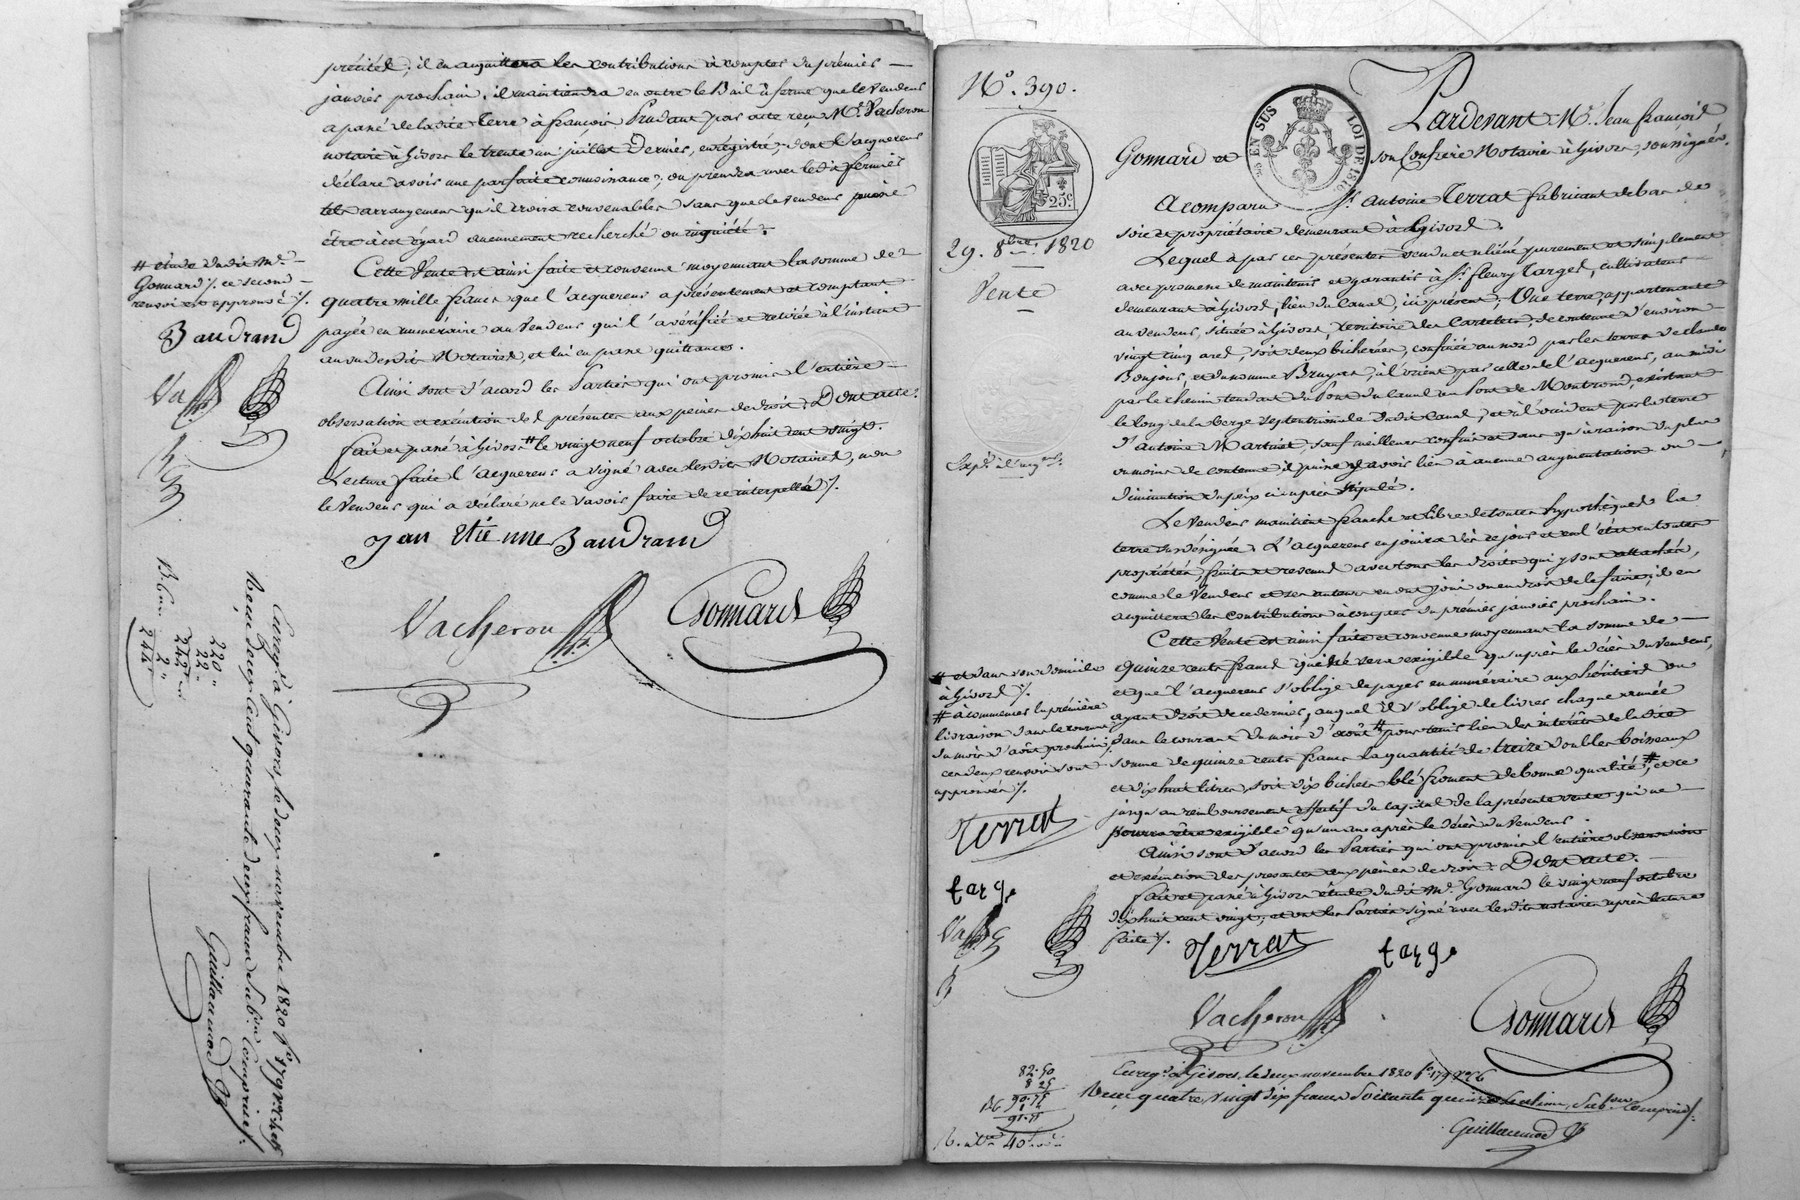 précités ; il en acquittera les contributions à compter du premier
janvier prochain, il maintiendra en outre le Bail à ferme que le vendeur
a passé de ladite terre à françois Prudant par acte reçu Me Vacheron
notaire à Givors le trente un juillet Dernier, enrégistré, dont l'acquereur
déclare avoir une parfaite connoissance, ou prendra avec ledit fermier
tels arrangemens qu'il croira convenables sans que le vendeur puisse
être à cet égard aucunement recherché ou inquiété.
Cette Vente est ainsi faite et convenue moyennant la somme de
quatre mille francs que l'acquereur a présentement et comptant
payée en numéraire au vendeur qui l'a vérifiée et retirée à l'instant
au vu desdits Notaires, et lui en passe quittance.
Ainsi sont d'acord les Parties qui ont promis l'entière
observation et exécution des présentes aux peines de droit. Dont acte.
fait et passé à Givors # le vingt neuf octobre dix huit cent vingt.
Lecture faite l'acquereur a signé avec lesdits Notaires, non
le vendeur qui a déclaré ne le savoir faire de ce interpellé ?.
# étude dudit Me
Gonnard ?. ce second
renvoi est approuvé ?.
Baudrand
Va
Jan Etienne Baudrand
Vacheron Gonnard
220 "
22 "
242 "
2 "
244 "
Enregé à Givors, le deux novembre 1820 fo 179
Reçu Deux Cent quarante deux francs Subon Comprise.
Guillaumod
No. 390.
EN SUS
LOI DE 1816
25c
29. 8bre 1820
Vente
Pardevant Me Jean françois
Gonnard et son Confrère Notaires à Givors, soussignés.
A comparu Sr Antoine Terrat fabricant de bas de
soie et propriétaire demeurant à Givors.
Lequel a par ces présentes vendu et aliéné purement et simplement
avec promesse de maintenir et garantir à Sr fleury Targe, cultivateur
demeurant à Givors, lieu du Canal, ici présent, Une terre, appartenante
au vendeur, située à Givors, territoire des Cartelets, de contenue d'environ
vingt cinq ares, soit deux bicherées, confinée au nord par les terres de claude
Bonjour, et du nommé Bruyas, à l'orient par celle de l'acquereur, au midi
par le chemin tendant du Pont du Canal au Pont de Montrond, existant
le long de la berge septentrionale dudit Canal, et à l'occident par la terre
d'antoine Martinet, sauf meilleurs confins et sans qu'à raison du plus
ou moins de contenue, il puisse y avoir lieu à aucune augmentation ou
diminution du prix ci après stipulé.
Le vendeur maintient franche et libre de toutes hypothèques la
terre susdésignée. L'acquereur en jouira dès ce jour et en l'état en toutes
propriétés, fruits et revenus avec tous les droits qui y sont attachés,
comme le vendeur et ses auteurs en ont joui ou eu droit de le faire, il en
acquittera les contributions à compter du premier janvier prochain.
Cette Vente est ainsi faite et convenue moyennant la somme de
quinze cents francs qui ne sera exigible qu'après le décès du vendeur,
et que l'acquereur s'oblige de payer en numéraire aux héritiers ou
ayant droit de ce dernier, auquel il s'oblige de livrer chaque année
dans le courant du mois d'août # pour tenir lieu des intérêts de ladite
somme de quinze cents francs la quantité de treize doubles boisseaux
et dix huit litres, soit dix bichets blé froment de bonne qualité #, et ce
jusqu'au remboursement effectif du capital de la présente vente qui ne
pourra être exigible qu'un an après le décès du vendeur.
Ainsi sont d'acord les Parties qui ont promis l'entière observation
et exécution des presentes aux peines de droit. Dont acte.
fait et passé à Givors étude dudit Me Gonnard le vingt neuf octobre
dix huit cent vingt, et ont les Parties signé avec lesdits notaires après lecture
faite ?.
# et dans son domicile
à Givors ?.
# à commencer la première
livraison dans le courant
du mois d'août prochain
ces deux renvois sont
approuvés ?.
Terrat
targe
Va
Terrat targe
Vacheron Gonnard
82.50
8 25
90.75
91.75
Enregé à Givors, le deux novembre 1820 fo 179
Reçu quatre vingt dix francs Soixante quinze centimes, Subon Comprise.
Guillaumod